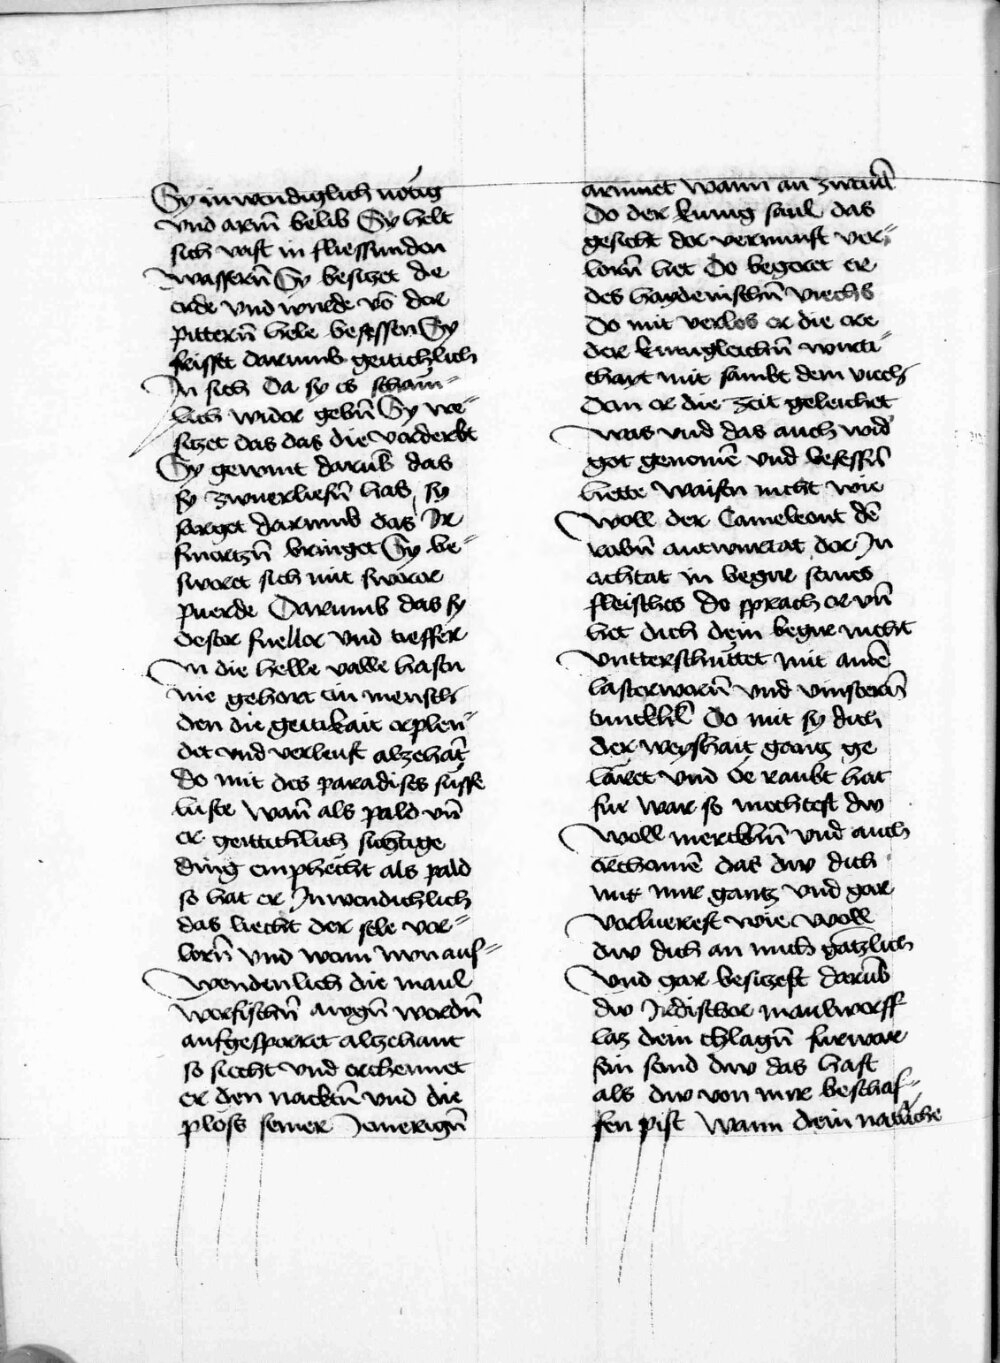 Sy inwendiglich nötig
vnd arm̄ belib Sy helt
sich vast in fliessunden
wassern̄ Sy besiczet die
erde vnd wirde vō der
pittern̄ hele besessen Sy
frisset darumb geitichlich
In sich Da sy es scham=
lich wider gebn̄ Sy we=
siczet das das die verderbt
Sy gewint darūb das
sy zwuerliesn̄ hab sy
sorget darumb das Ir
smertzn̄ bringet Sy be=
sweret sich mit swerer
puerde Darumb das sy
dester sneller vnd tieffer
In die helle valle hastu
nie gehort ein mensch
den die geitikait erplen=
det vnd verleust alzehāt
do mit des paradises süsse
luste Wan̄ als pald vn̄
er geittichlich sichtige
ding emphecht als pald
so hat er Inwendichlich
das liecht der sele ver=
lorn̄ vnd wenn nun aus=
wendenlich die maul
worfischn̄ augn̄ werdn̄
aufgesperret alczehant
so siecht vnd erchennet
er den nacktn̄ vnd die
plöss seiner Jnnerign̄
armuet Wann an zweiul
Do der kunig saul das
gesicht der vernunft ver=
lorn̄ het Do begeret er
des haydenischn̄ viechs
Do mit verlos er die ere
der kunigleichn̄ wirti=
chayt mit sambt dem viech
Den er die zeit geleichet
was vnd das auch wid'
got genomē vnd besessn̄
hette Waistu nicht wie
woll der Cameleont dē
rabn̄ antwurtat der In
achtat in begir seines
fleisches do sprach er vn̄
het dich dein begir nicht
vntterschüttet mit ainē
lasterwarn̄ vnd vinstern̄
Do mit sy dich
der weyshait gantz ge
läret vnd be raubt hat
fur war so mochtest dw
woll merckhn̄ vnd auch
erchennē das dw dich
mit mir gantz vnd gar
verluerest wie woll
dw dich an mich gātzlich
vnd gar besiczest darūb
dw Irdischer maulworff
laz dein chlagn̄ furwar
sein send dw das hast
als dw von mir beschaf=
fen pist Wann dein natūrliche